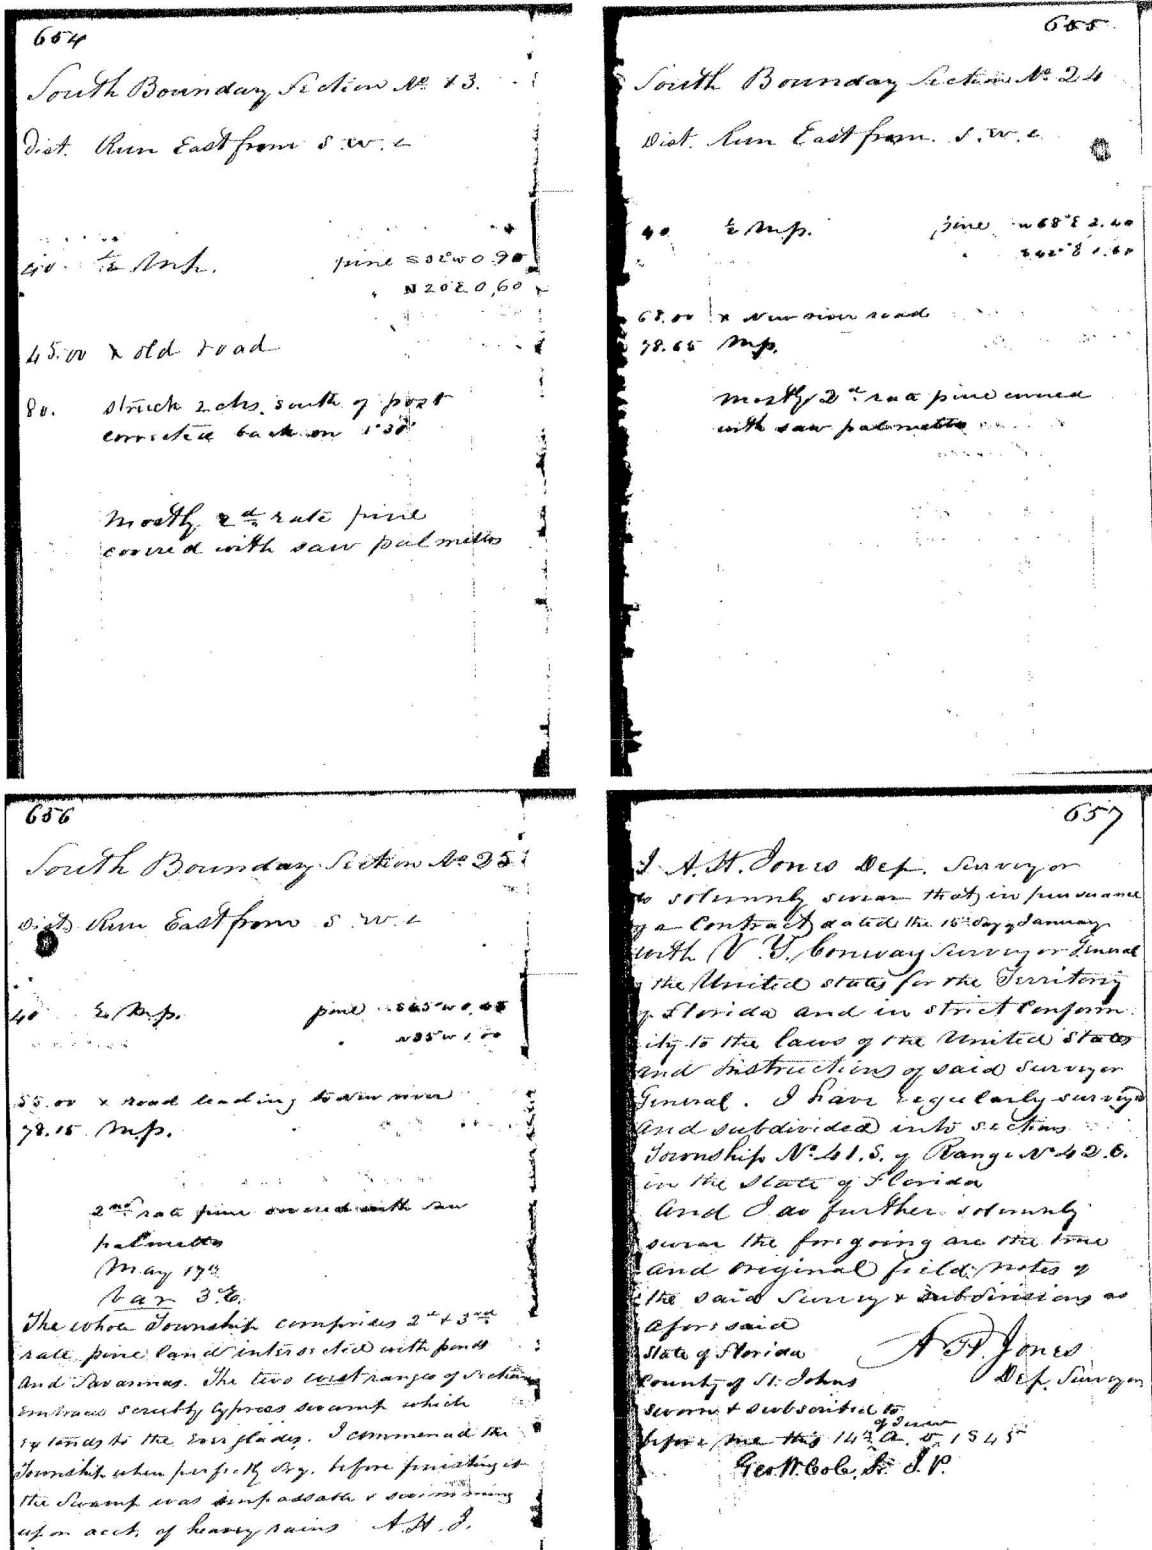 654
South Boundary Section No 13.
Dist. Run East from S. W. c
40. ½ M.p. pine S 32 W 0.90
" N 20 E 0,60
45.00 x old road
80. struck 2 chs. south of post
corrected back on 1°30'
Mostly 2d rate pine
covered with saw palmetto
655
South Boundary Section No 24
Dist. Run East from. S. W. c
40 ½ M.p. pine N 68° E 2.40
68.00 x New river road
78.65 M.p.
Mostly 2d rate pine covered
with saw palmetto
656
South Boundary Section No 25
Dist. Run East from S. W. c
40 ½ M.p. pine
" N 35 W 1.00
55.00 x road leading to New river
78.15 M.p.
2nd rate pine covered with saw
palmetto
May 17th
Var 3°E.
The whole Township comprises 2d & 3rd
rate pine land intersected with ponds
and Savannas. The two west ranges of Sections
embraces scrubby Cypress swamp which
extends to the Everglades. I commenced the
Township when perfectly dry. before finishing it
the Swamp was impassable & swimming
upon acct. of heavey rains A. H. J.
657
I A. H. Jones Dep. Surveyor
do solemnly swear that in pursuance
of a Contract dated the 15th day of January
with V. Y. Conway Surveyor General
of the United states for the Territory
of Florida and in strict Conform
ity to the laws of the United States
and instructions of said Surveyor
General. I have regularly surveyed
and subdivided into sections
Township No 41. S. of Range No 42 E.
in the State of Florida
And I do further solemnly
swear the foregoing are the true
and original field notes of
the said Survey & subdivisions as
aforesaid
State of Florida A H Jones
County of St. Johns Dep. Surveyor
sworn & subscribed to
before me this 14th of June A. D. 1845
Geo. W. Cole, J. P.